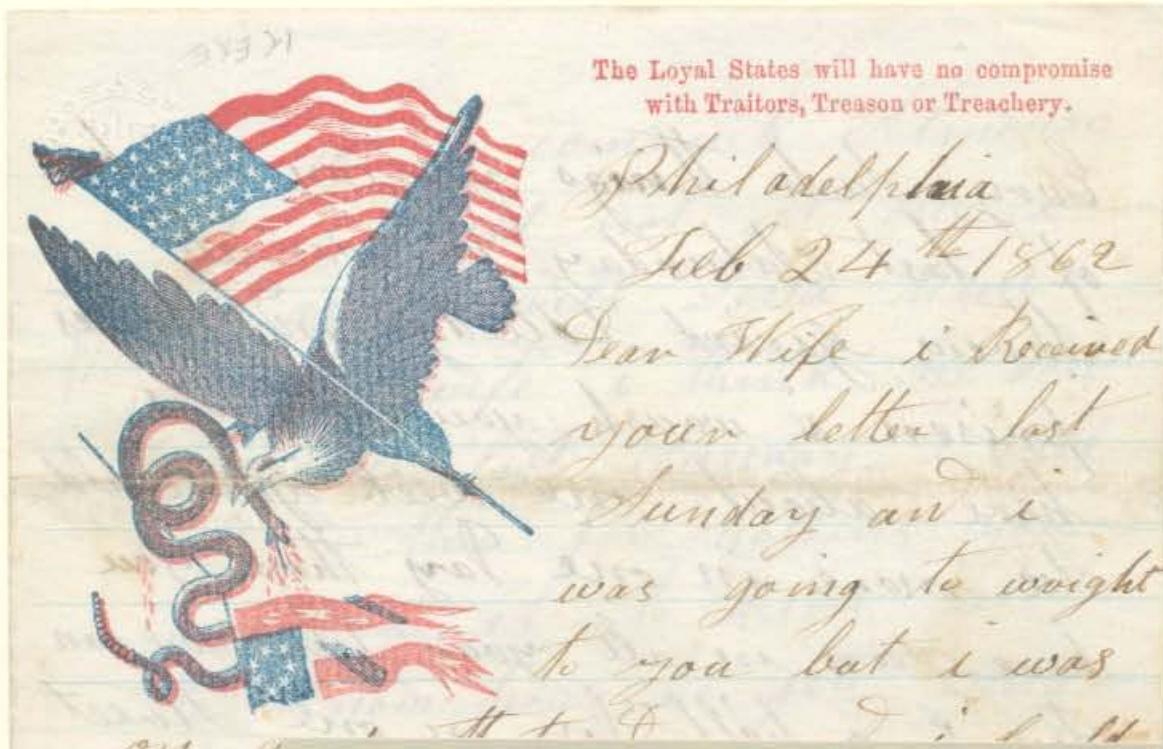 The Loyal States will have no compromise
with Traitors, Treason or Treachery.
Philadelphia
Feb 24th 1862
Dear Wife i Received
your letter last
Sunday and i
was going to wright
to you but i was
on